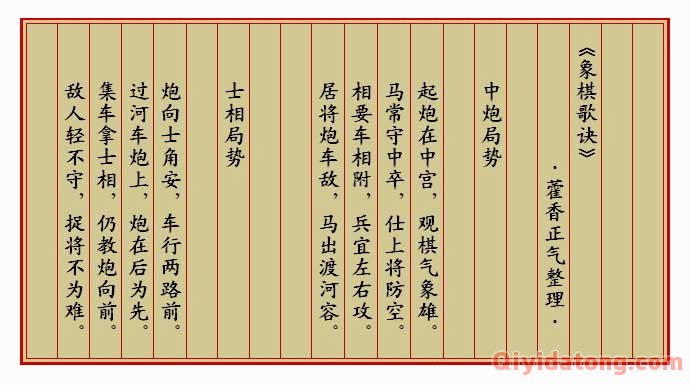 《象棋歌诀》
·藿香正气整理·
中炮局势
起炮在中宫，观棋气象雄。
马常守中卒，仕上将防空。
相要车相附，兵宜左右攻。
居将炮车敌，马出渡河容。
士相局势
炮向士角安，车行两路前。
过河车炮上，炮在后为先。
集车拿士相，仍教炮向前。
敌人轻不守，捉将不为难。
Qiyidatong.com